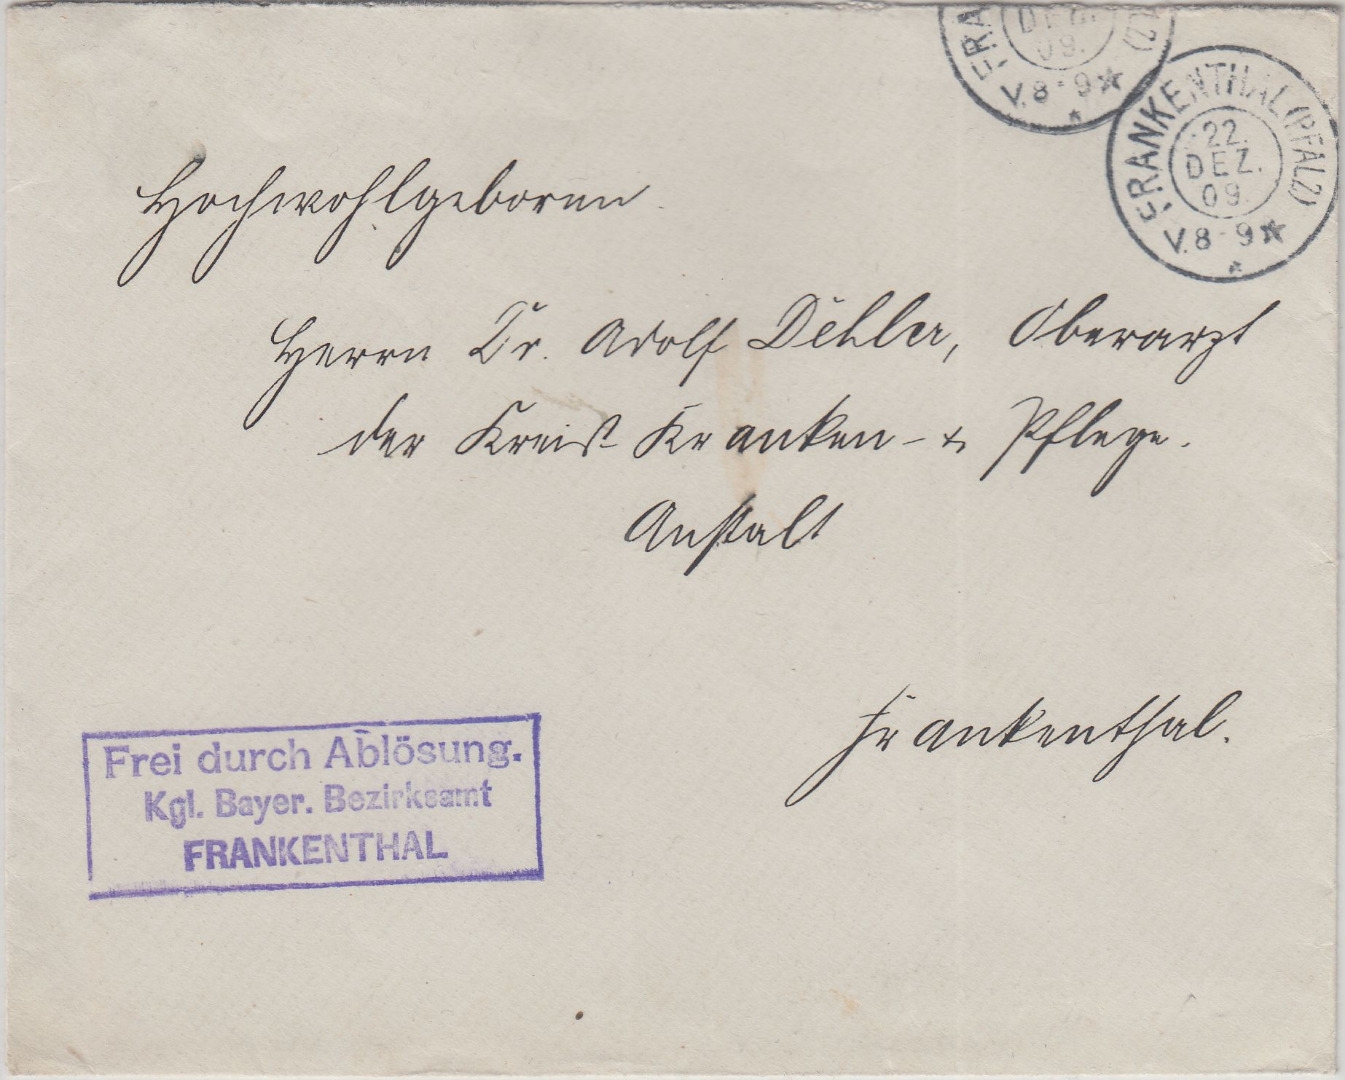 FRA
DEZ.
09.
V.8-9
FRANKENTHAL (PFALZ)
22.
DEZ.
09.
V.8-9
Hochwohlgeboren
Herrn Dr. Adolf Dehler, Oberarzt
der Kreis Kranken- & Pflege-
Anstalt
Frankenthal.
Frei durch Ablösung.
Kgl. Bayer. Bezirksamt
FRANKENTHAL